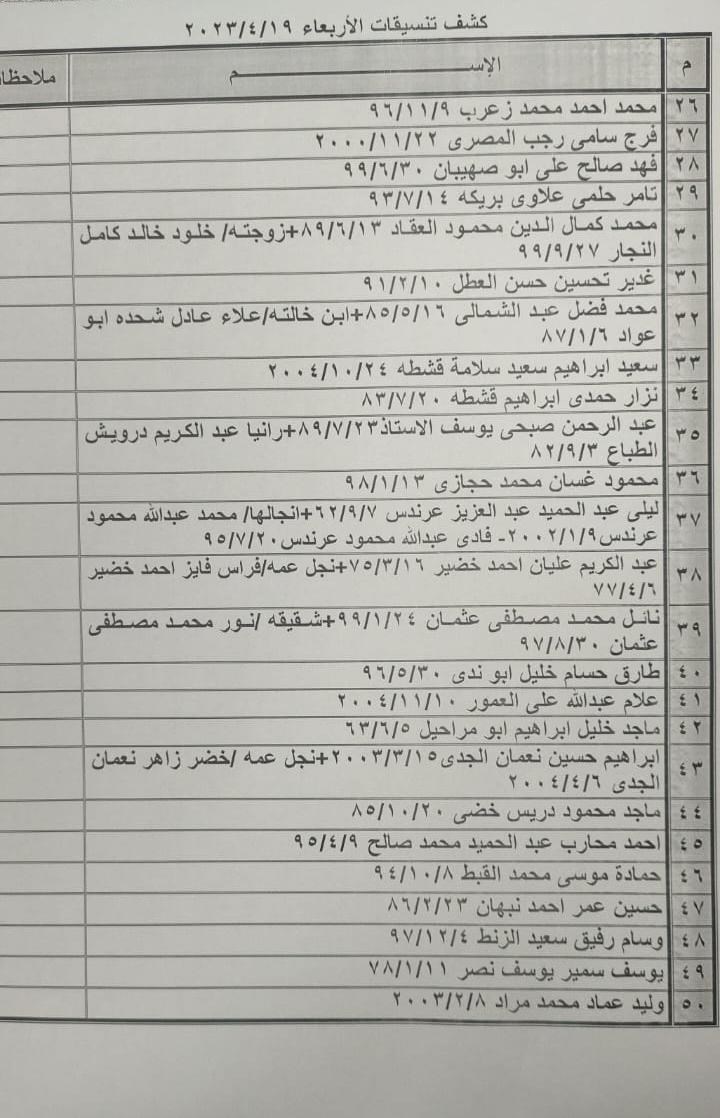 كشف تنسيقات الأربعاء ٢٠٢٣/٤/١٩
م الإســـــــــــــم ملاحظا
٢٦ محمد احمد محمد زعرب ٩٦/١١/٩
٢٧ فرج سامى رجب المصرى ٢٠٠٠/١١/٢٢
٢٨ فهد صالح على ابو صهيبان ٩٩/٦/٣٠
٢٩ تامر حلمى علاوى بريكه ٩٣/٧/١٤
٣٠ محمد كمال الدين محمود العقاد ٨٩/٦/١٣+زوجته/ خلود خالد كامل
النجار ٩٩/٩/٢٧
٣١ غدير تحسين حسن العطل ٩١/٢/١٠
٣٢ محمد فضل عبد الشمالى ٨٥/٥/١٦+ابن خالته/علاء عادل شحده ابو
عواد ٨٧/١/٦
٣٣ سعيد ابراهيم سعيد سلامة قشطه ٢٠٠٤/١٠/٢٤
٣٤ نزار حمدى ابراهيم قشطه ٨٣/٧/٢٠
٣٥ عبد الرحمن صبحى يوسف الاستاذ٨٩/٧/٢٣+رانيا عبد الكريم درويش
الطباع ٨٢/٩/٣
٣٦ محمود غسان محمد حجازى ٩٨/١/١٣
٣٧ ليلى عبد الحميد عبد العزيز عرندس ٦٢/٩/٧+انجالها/ محمد عبدالله محمود
عرندس٢٠٠٢/١/٩- فادى عبدالله محمود عرندس٩٥/٧/٢٠
٣٨ عبد الكريم عليان احمد خضير ٧٥/٣/١٦+نجل عمه/فراس فايز احمد خضير
٧٧/٤/٦
٣٩ نائل محمد مصطفى عثمان ٩٩/١/٢٤+شقيقه /نور محمد مصطفى
عثمان ٩٧/٨/٣٠
٤٠ طارق حسام خليل ابو ندى ٩٦/٥/٣٠
٤١ علام عبدالله على العمور ٢٠٠٤/١١/١٠
٤٢ ماجد خليل ابراهيم ابو مراحيل ٦٣/٦/٥
٤٣ ابراهيم حسين نعمان الجدى٢٠٠٣/٣/١٥+نجل عمه /خضر زاهر نعمان
الجدى ٢٠٠٤/٤/٦
٤٤ ماجد محمود دريس خضى ٨٥/١٠/٢٠
٤٥ احمد محارب عبد الحميد محمد صالح ٩٥/٤/٩
٤٦ حمادة موسى محمد القبط ٩٤/١٠/٨
٤٧ حسين عمر احمد نبهان ٨٦/٢/٢٣
٤٨ وسام رفيق سعيد الزنط ٩٧/١٢/٤
٤٩ يوسف سمير يوسف نصر ٧٨/١/١١
٥٠ وليد عماد محمد مراد ٢٠٠٣/٢/٨